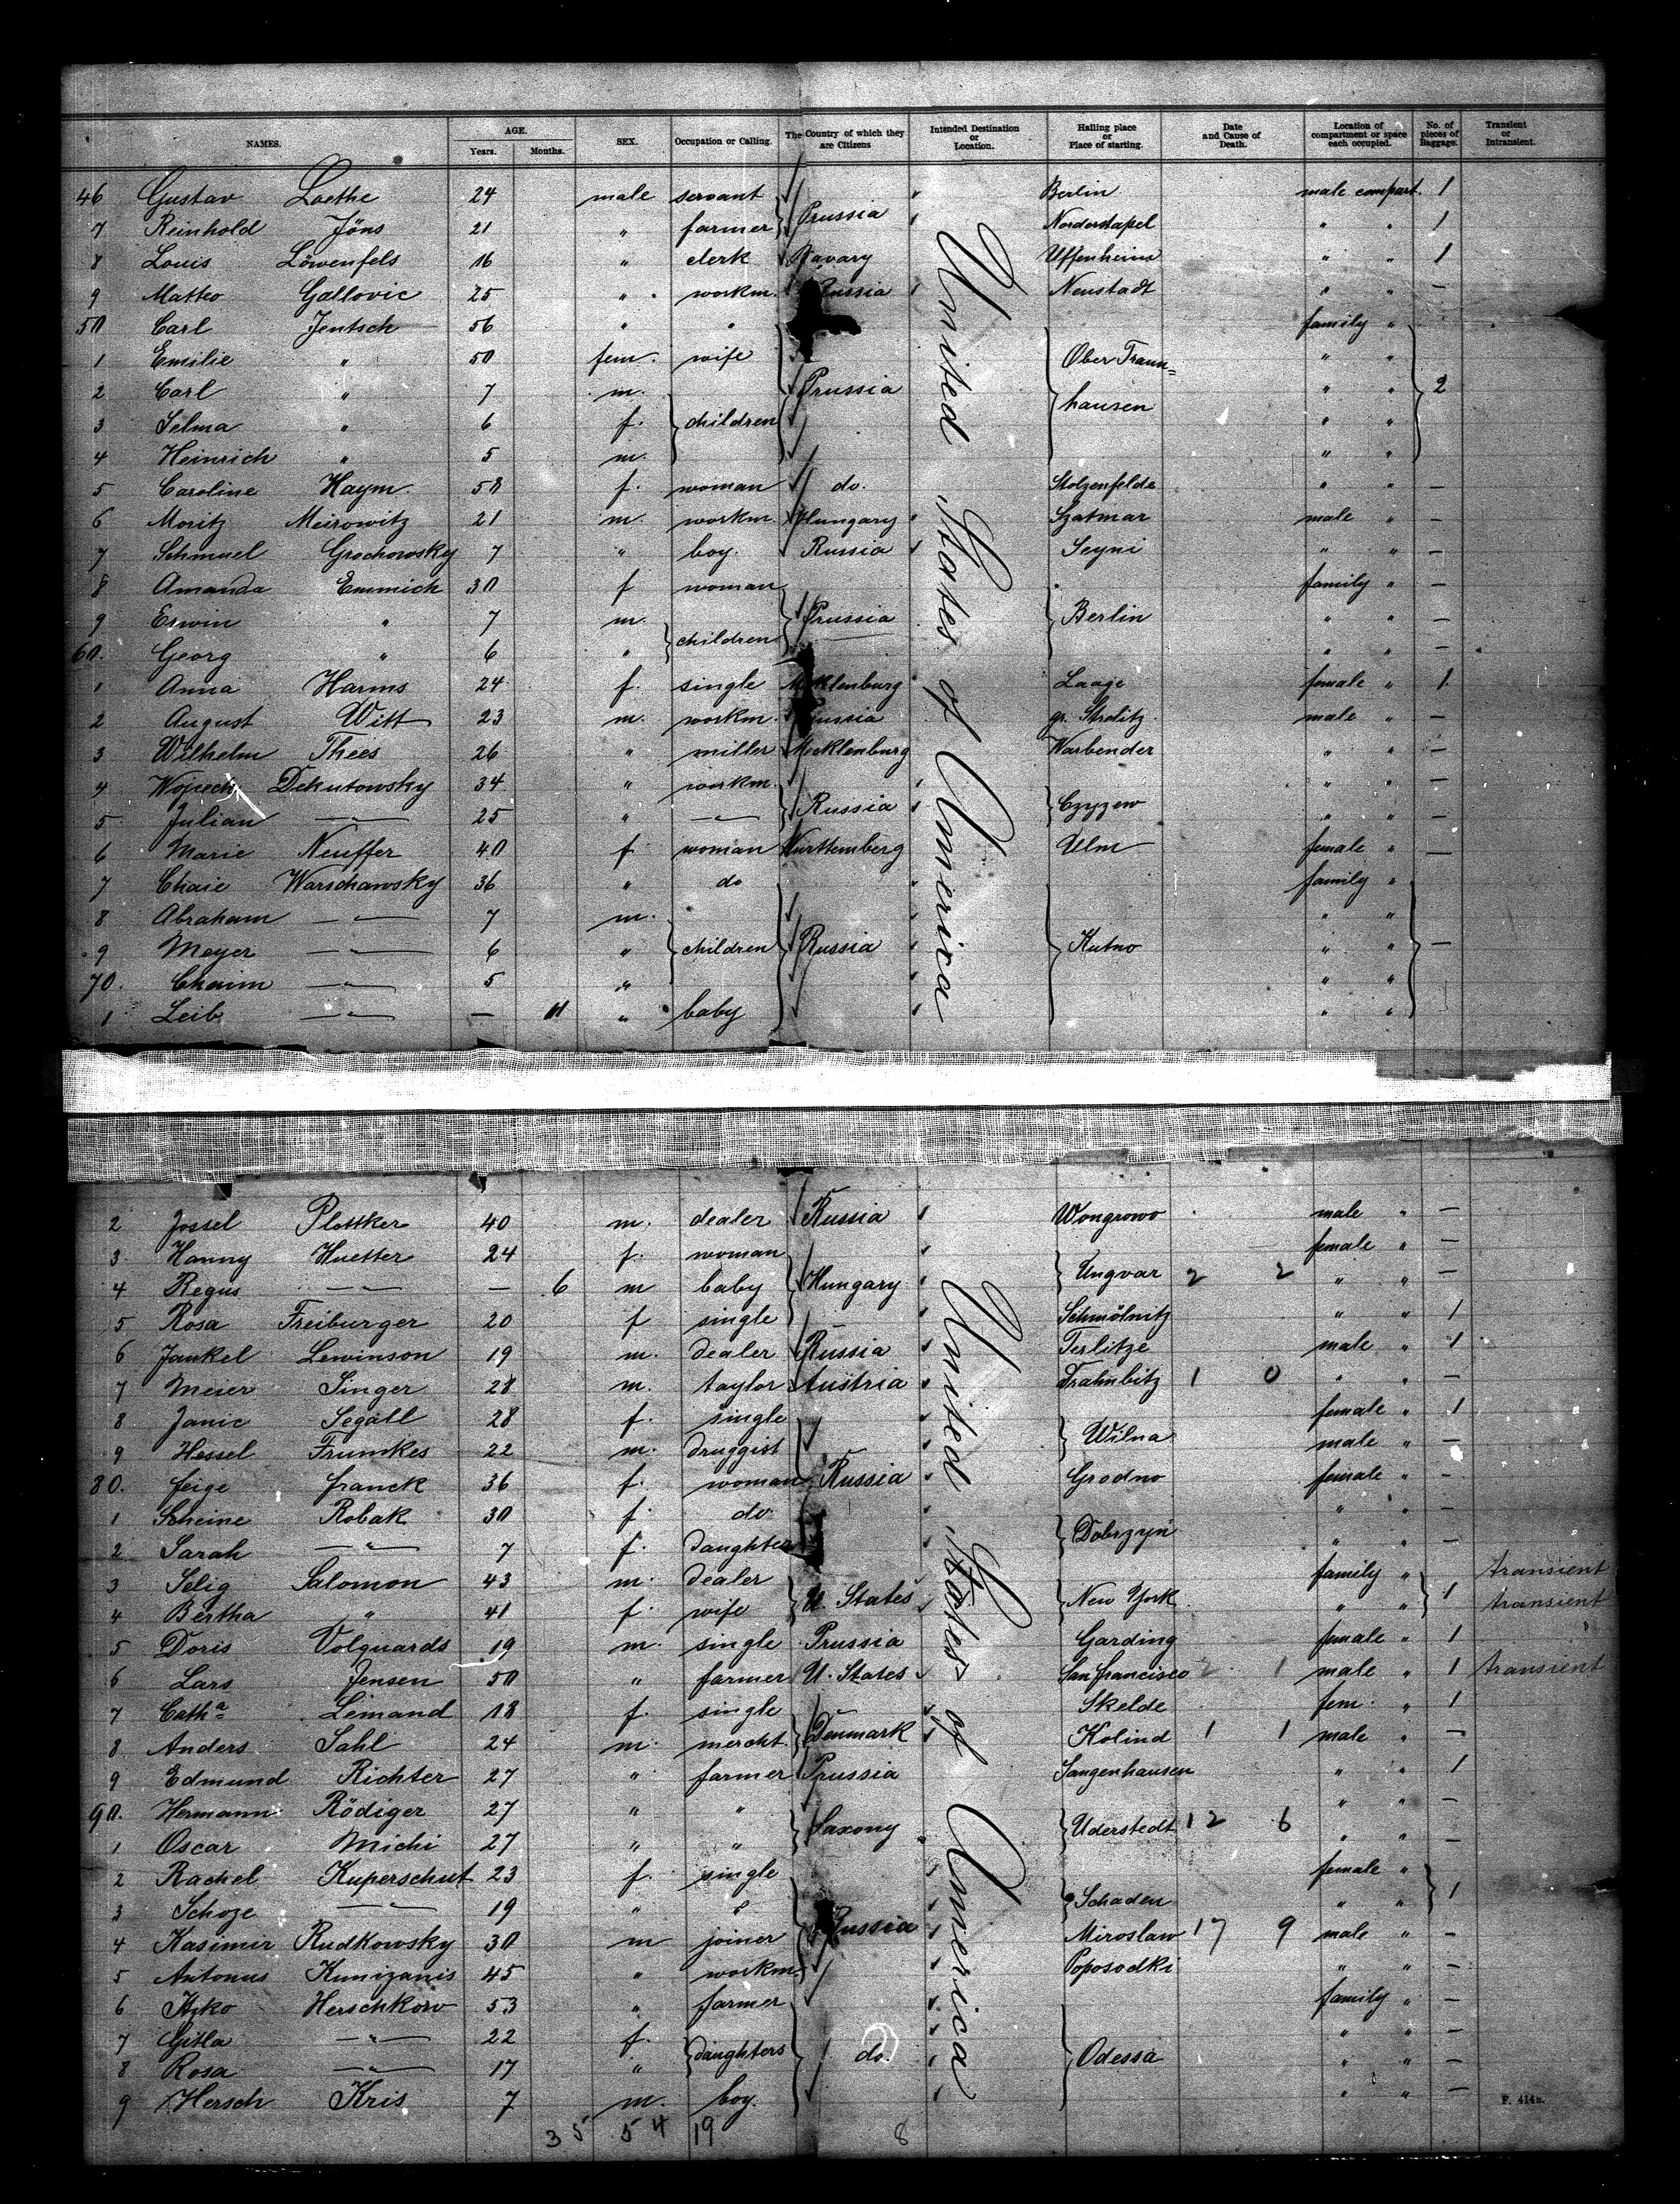 NAMES. AGE. Years. Months. SEX. Occupation or Calling. The Country of which they are Citizens Intended Destination or Location. Hailing place or Place of starting. Date and Cause of Death. Location of compartment or space each occupied. No. of pieces of Baggage. Transient or Intransient.
46 Gustav Loethe 24 male servant Berlin male compart. 1
7 Reinhold Jöns 21 " farmer } Prussia Norderstapel " " 1
8 Louis Löwenfels 16 " clerk Bavary Uffenheim " " 1
9 Matteo Gallovic 25 " workm. Russia Neustadt " " —
50 Carl Jentsch 56 " " family "
1 Emilie " 50 fem. wife Ober Traun= " "
2 Carl " 7 m. Prussia hausen " " 2
3 Selma " 6 f. children " "
4 Heinrich " 5 m. " "
5 Caroline Haym 58 f. woman do. Stolzenfelde " " —
6 Moritz Meirowitz 21 m. workm. Hungary Szatmar male " —
7 Schmuel Grochowsky 7 " boy. Russia Seyni " " —
8 Amanda Emmich 30 f woman family " —
9 Erwin " 7 m. Prussia Berlin " " —
60. Georg " 6 " children " " —
1 Anna Harms 24 f. single Mecklenburg Laage female " 1.
2 August Witt 23 m. workm. Russia gr. Strelitz male " —
3 Wilhelm Thees 26 " miller Mecklenburg Warbender " " —
4 Wojeech Dekutowsky 34 " workm. " " —
5 Julian —"— 25 " —"— Russia Czyzew " " —
6 Marie Neuffer 40 f. woman Württemberg Ulm female " —
7 Chaie Warschawsky 36 " do family "
8 Abraham —"— 7 m. " "
9 Meyer —"— 6 " children Russia Kutno " " —
70. Chaim —"— 5 " " "
1 Leib —"— — 11 " baby " "
United States of America
2 Jossel Plottker 40 m. dealer Russia Wongrowo male " —
3 Hanny Huetter 24 f. woman female " —
4 Regus —"— — 6 m baby Hungary Ungvar 2 2 " " —
5 Rosa Freiburger 20 f single Schmölnitz " " 1
6 Jankel Lewinson 19 m. dealer Russia Terlitze male " 1
7 Meier Singer 28 m. taylor Austria Drahnbitz 1 0 " " —
8 Janie Segall 28 f. single female " 1
9 Hessel Frumkes 22 m. druggist Wilna male " —
80. Feige Franck 36 f. woman Russia Grodno female " —
1 Scheine Robak 30 f. do. " " —
2 Sarah —"— 7 f. daughter Dobrzyn " " —
3 Selig Salomon 43 m. dealer family " transient
4 Bertha " 41 f. wife U. States New York " " 1 transient
5 Doris Volquards 19 m. single Prussia Garding female " 1
6 Lars Jensen 50 " farmer U. States San Francisco 2 1 male " 1 transient
7 Catha Lemand 18 f. single Skelde fem. " 1
8 Anders Sahl 24 m. mercht. Denmark Kolind 1 1 male " —
9 Edmund Richter 27 " farmer Prussia Sangenhausen " " 1
90. Hermann Rödiger 27 " " " " —
1 Oscar Michi 27 " " Saxony Uderstedt 12 6 " " —
2 Rachel Kuperschut 23 f. single female "
3 Schoze —"— 19 " " Schaden " " 1
4 Kasimir Rudkowsky 30 m joiner Russia Miroslaw 17 9 male " —
5 Antonus Kunizanis 45 " workm. Poposodki " " —
6 Itzko Herschkow 53 " farmer family " —
7 Gitla —"— 22 f. " " —
8 Rosa —"— 17 " daughters do. Odessa " " —
9 Hersch Kris 7 m. boy. " " —
United States of America
35 54 19 8
F. 414a.